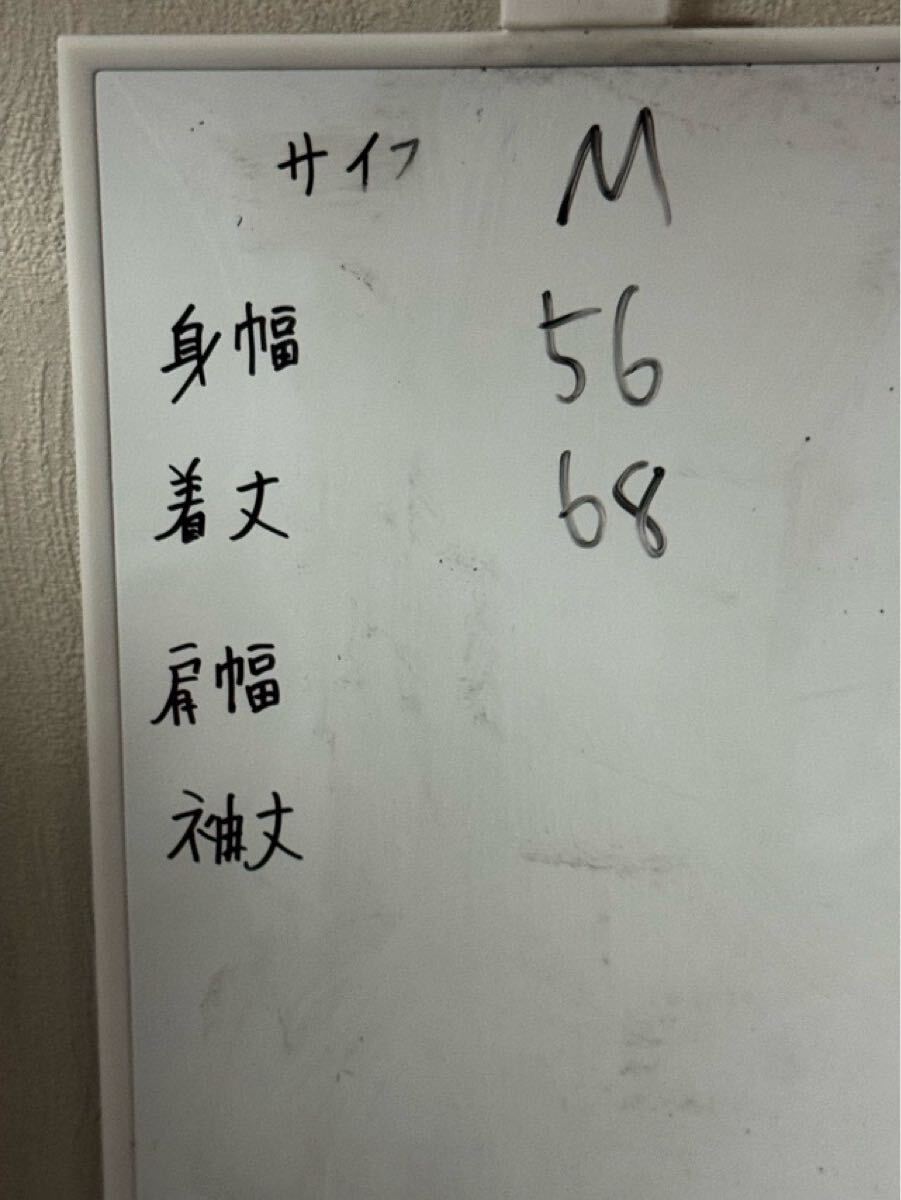 サイフ M
身幅 56
着丈 68
肩幅
袖丈